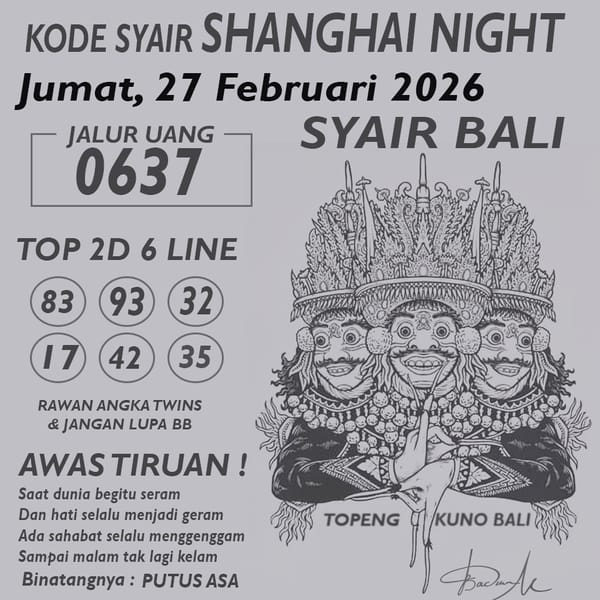 KODE SYAIR SHANGHAI NIGHT
Jumat, 27 Februari 2026
JALUR UANG
0637
SYAIR BALI
TOP 2D 6 LINE
83 93 32
17 42 35
RAWAN ANGKA TWINS
& JANGAN LUPA BB
AWAS TIRUAN !
Saat dunia begitu seram
Dan hati selalu menjadi geram
Ada sahabat selalu menggenggam
Sampai malam tak lagi kelam
Binatangnya : PUTUS ASA
TOPENG KUNO BALI